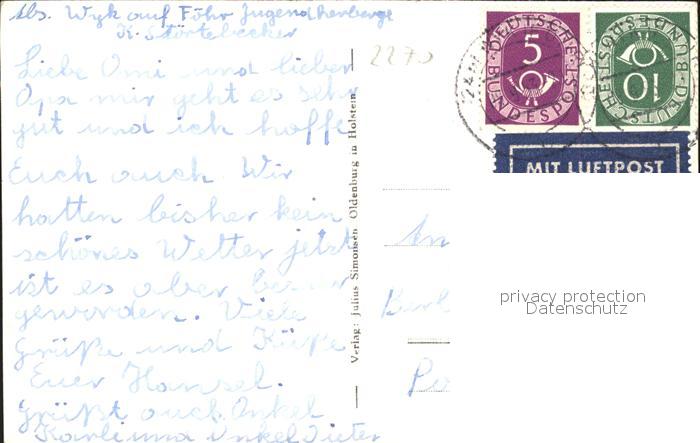 Abs. Wyk auf Föhr Jugendherberge
K. Störtebecker
2270
Liebe Omi und lieber
Opa mir geht es sehr
gut und ich hoffe
Euch auch. Wir
hatten bisher kein
schönes Wetter jetzt
ist es aber besser
geworden. Viele
Grüße und Küße
Euer Hansel.
Grüßt auch Onkel
Karli und Onkel Dieter
Verlag: Julius Simonsen Oldenburg in Holstein
DEUTSCHE BUNDESPOST
5
DEUTSCHE BUNDESPOST
10
MIT LUFTPOST
An
Berl
privacy protection
Datenschutz